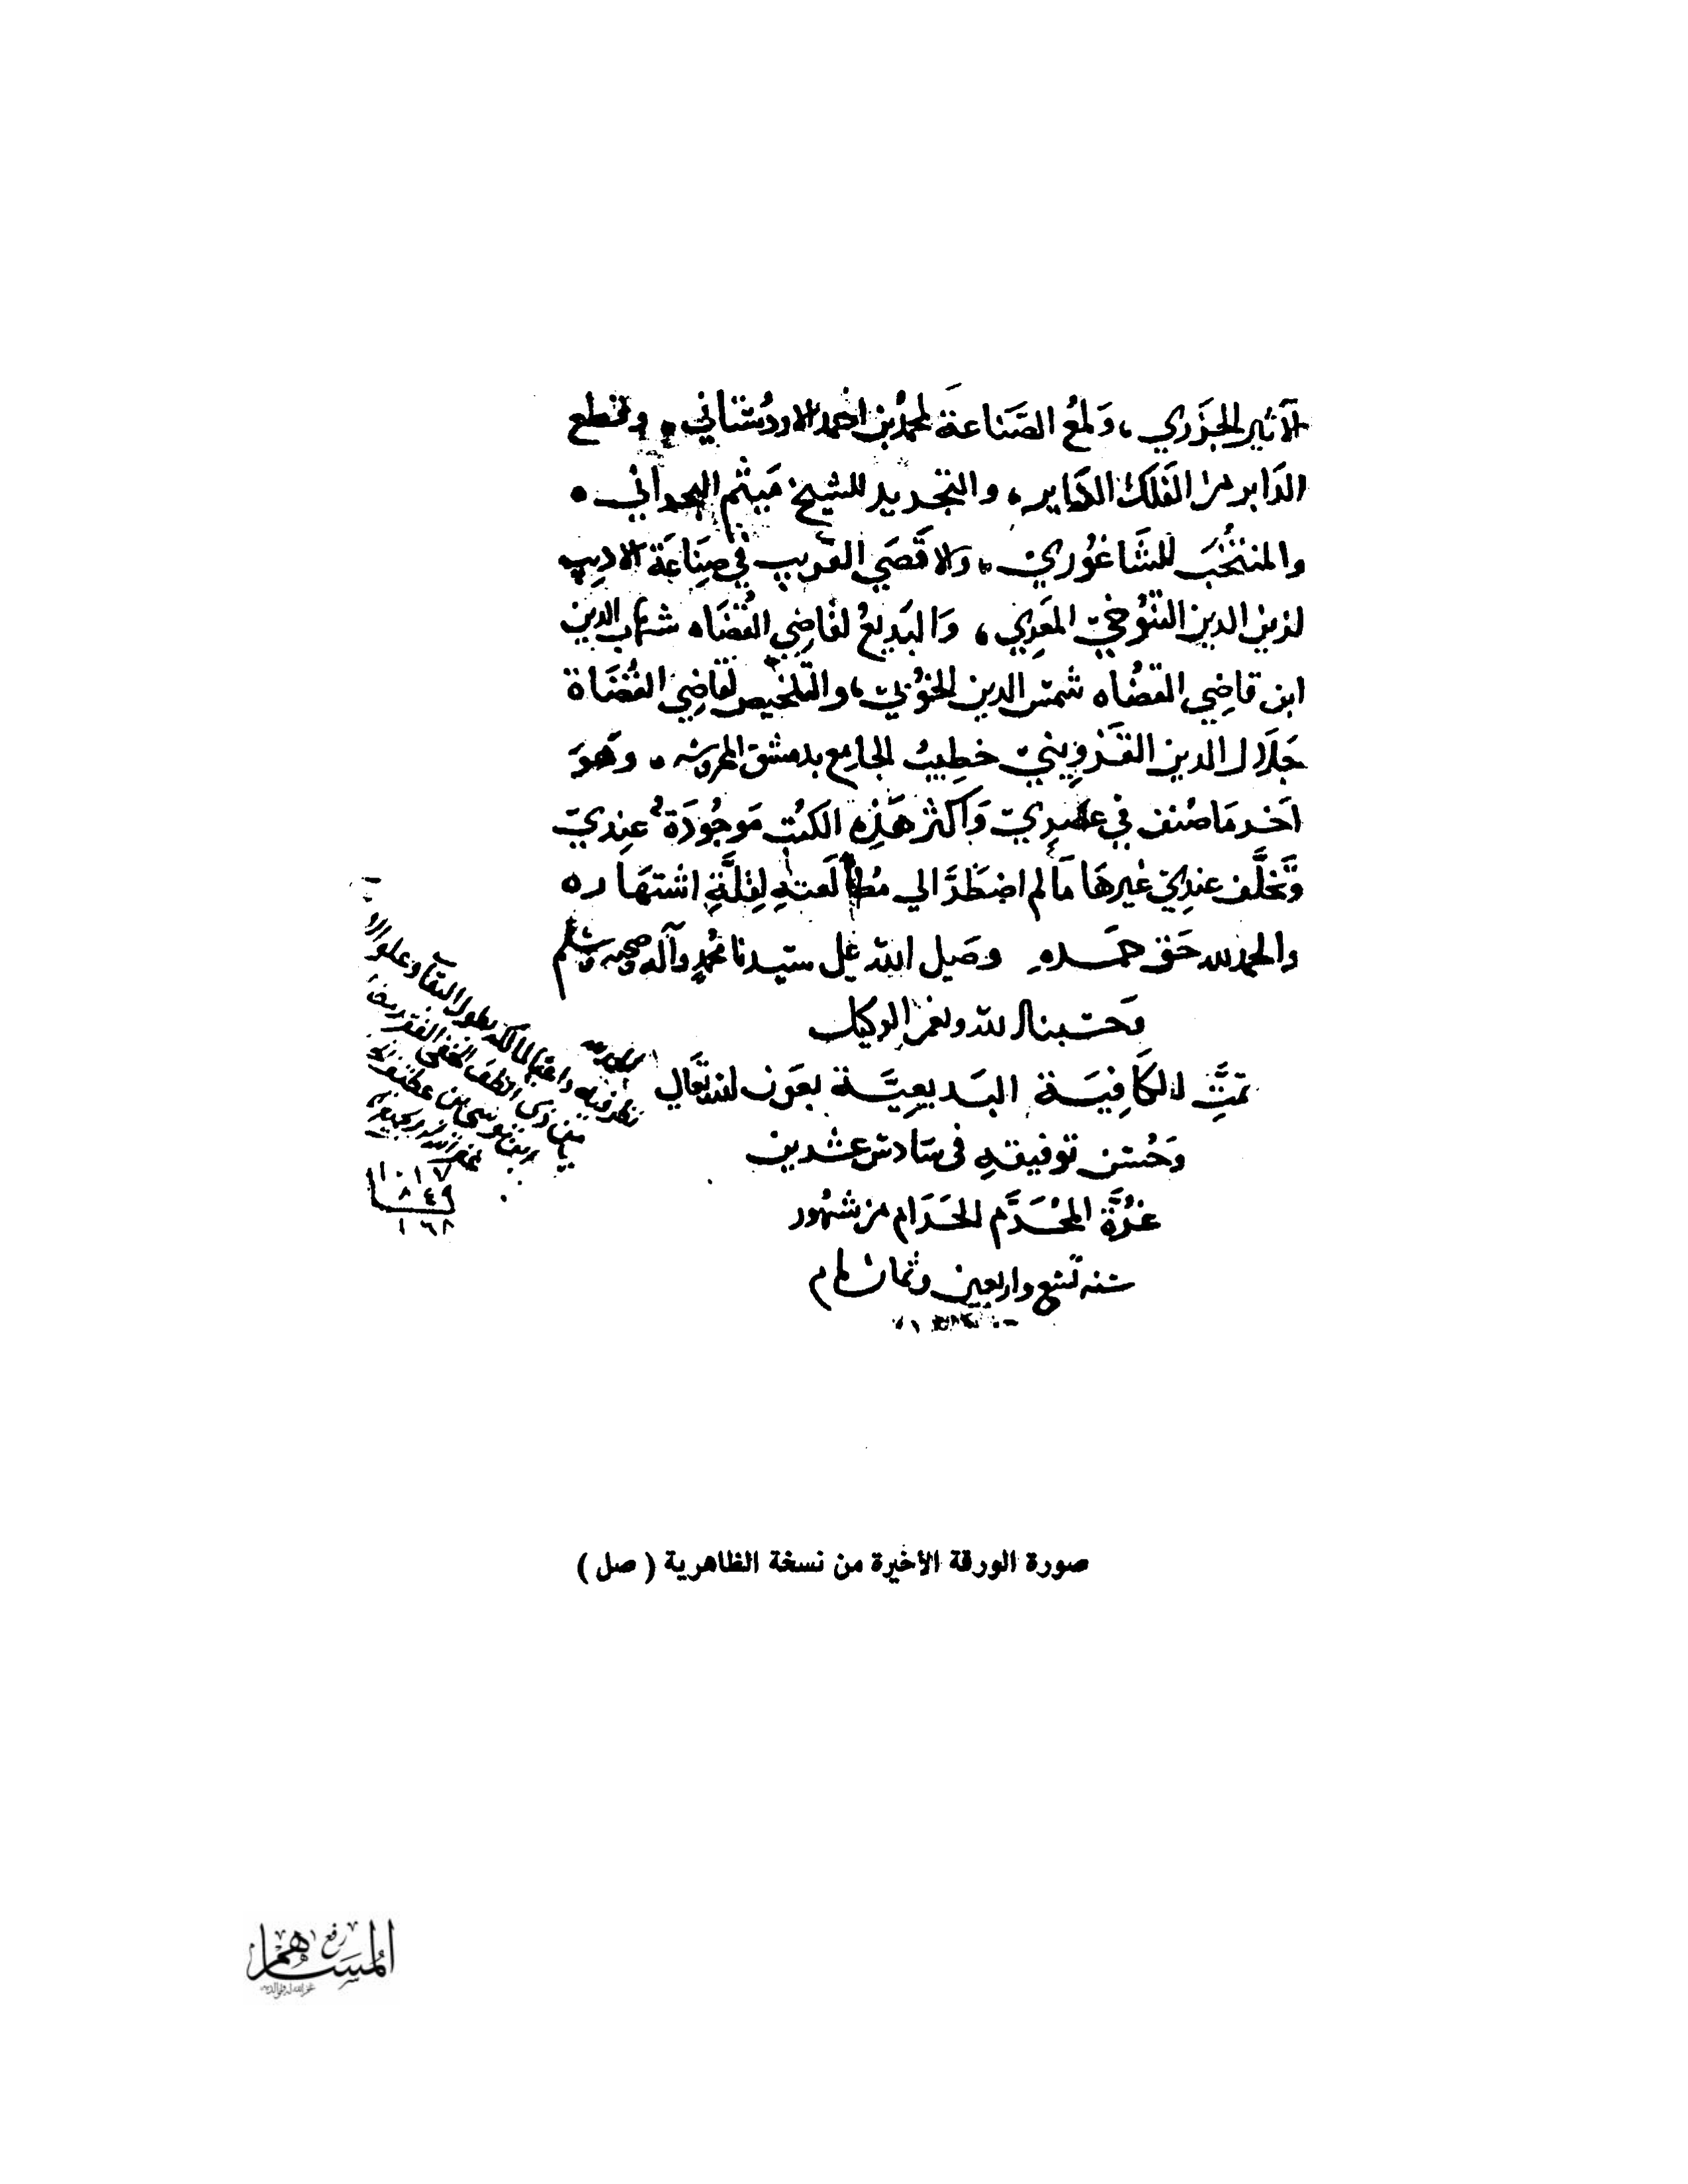 الاثير الجزري، وَلمعُ الصَّنَاعة لمحمد بن احمد الاردستاني، وقطع
الدَابر من الفَلك الدَاير، والتجريد للشيخ مَيثم البحراني،
والمنتخَب للشَاغوُري، والاقصَي القريب في صِنَاعَة الاديب
لزين الدين التنوُخيّ المعَري، وَالبَديعُ لقاضِي القُضَاه شهاب الدين
ابن قاضِي القضُاه شمس الدين الخوُيّ، والتلخيص لقاضِي القُضَاة
جَلَال الدين القَزوِينيّ خطِيبُ الجامِع بدمشق المحروسَه، وهوَ
اخَر مَا صُنف في عصرِيّ وَاكثر هَذِهِ الكتُب مَوجُودَة عندِيّ
وَتخلَّف عندِيّ غيرهَا مَا لم اضطَرَّ الي مُطالَعتهِ لِقلَّةِ اشتهَاره
والحمد لله حَق حمَده وصَلي الله عَلي سَيدنا مُحمدٍ وآله وصحبه وسَلم
وَحَسْبنا الله ونعم الوكيل
تمتَّ الكَافِيَة البَديعِيَّة بعَون الله تعَالي
وَحُسْن توفيقهِ فى سَادس عشرين
غرُّة المحُرَّم الحَرَام من شهُور
سَنه تسَع واربعين وثمان
١٠١٧
٨٤٩
١٦٨
صورة الورقة الأخيرة من نسخة الظاهرية ( صل )
رفع
المساهم
غفر الله له ولوالديه